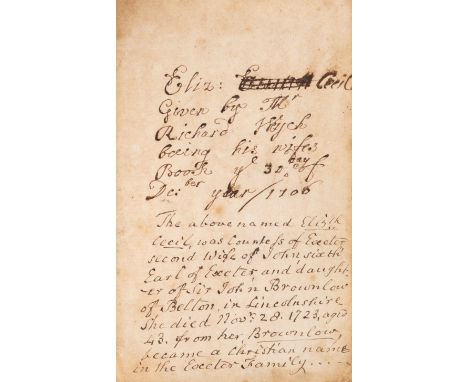 Eliz: Cecil
Given by Mr
Richard Wych
boeing his wifes
Book ye 30 day of
De:ber year/1700
The above named Elizth
Cecil, was Countess of Exeter
second Wife of John sixth
Earl of Exeter and daught-
er of Sir John Brownlow
of Belton, in Lincolnshire
She died Novr. 28. 1723, aged
43. from her, Brownlow,
became a Christian name
in the Exeter Family....